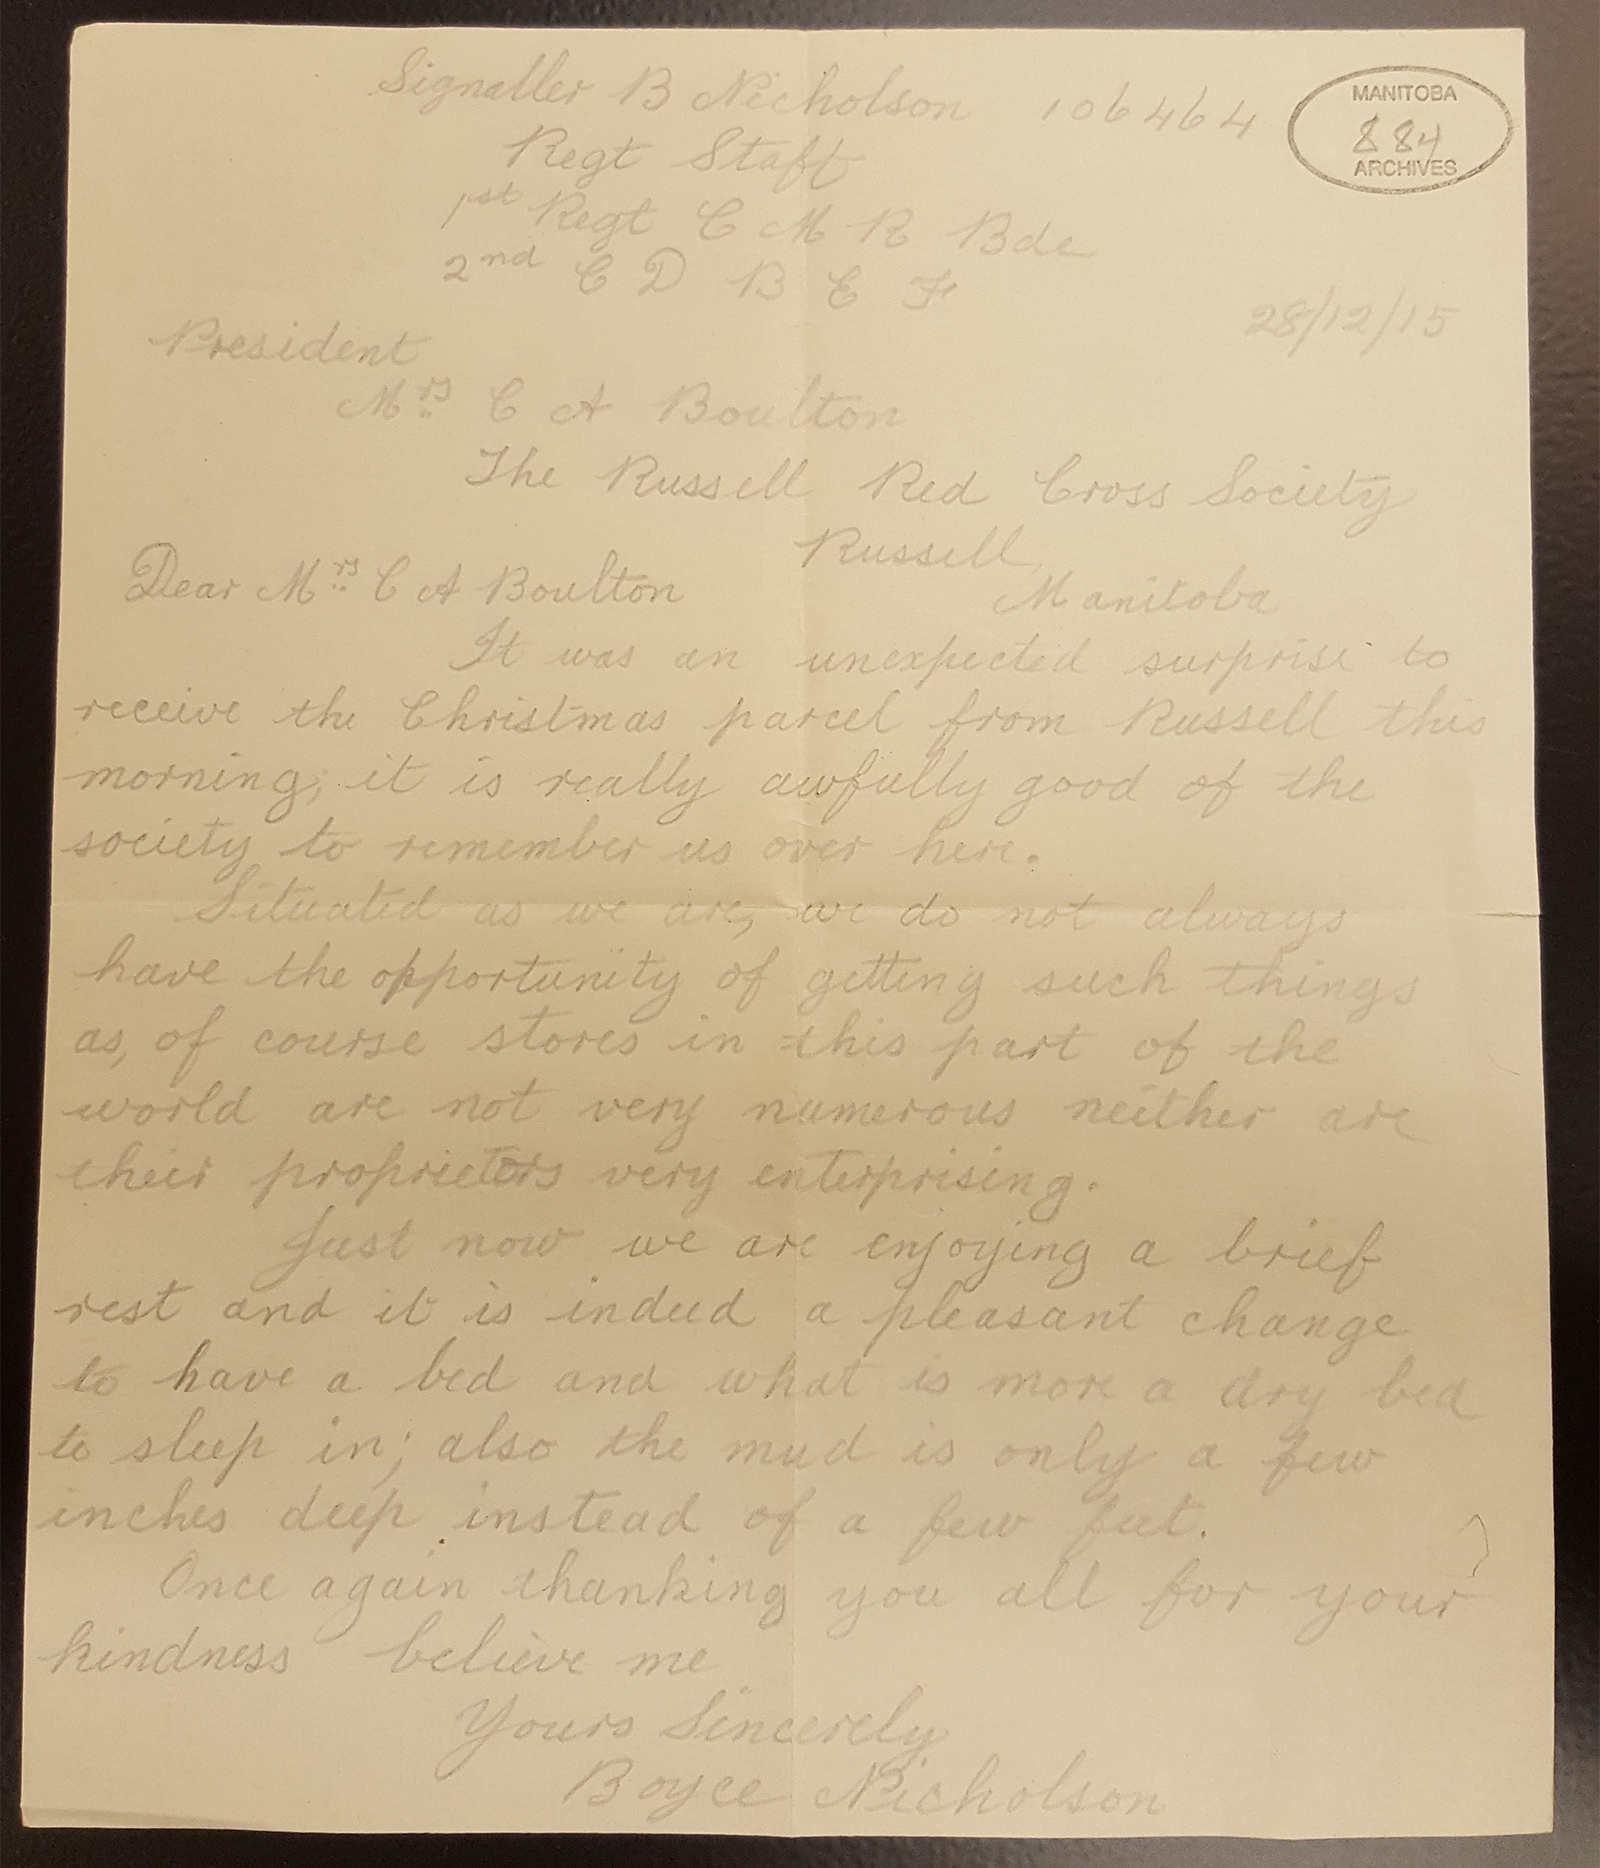 Signaller B Nicholson 106464
MANITOBA
884
ARCHIVES
Regt Staff
1st Regt C M R Bde
2nd C D B E F
28/12/15
President
Mrs C A Boulton
The Russell Red Cross Society
Russell,
Manitoba
Dear Mrs C A Boulton
It was an unexpected surprise to
receive the Christmas parcel from Russell this
morning; it is really awfully good of the
society to remember us over here.
Situated as we are, we do not always
have the opportunity of getting such things
as, of course stores in this part of the
world are not very numerous neither are
their proprietors very enterprising.
Just now we are enjoying a brief
rest and it is indeed a pleasant change
to have a bed and what is more a dry bed
to sleep in; also the mud is only a few
inches deep instead of a few feet.
Once again thanking you all for your
kindness believe me
Yours Sincerely
Boyce Nicholson